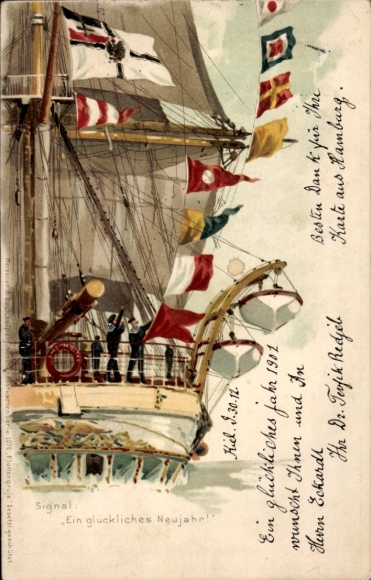 Signal:
"Ein glückliches Neujahr!"
Kiel. d. 30. 12.
Ein glückliches jahr 1901
wünscht Ihnen und
Herrn Eckardt
Ihr Dr. Tevfik Redjeb
Besten Dank für Ihre
Karte aus Hamburg.